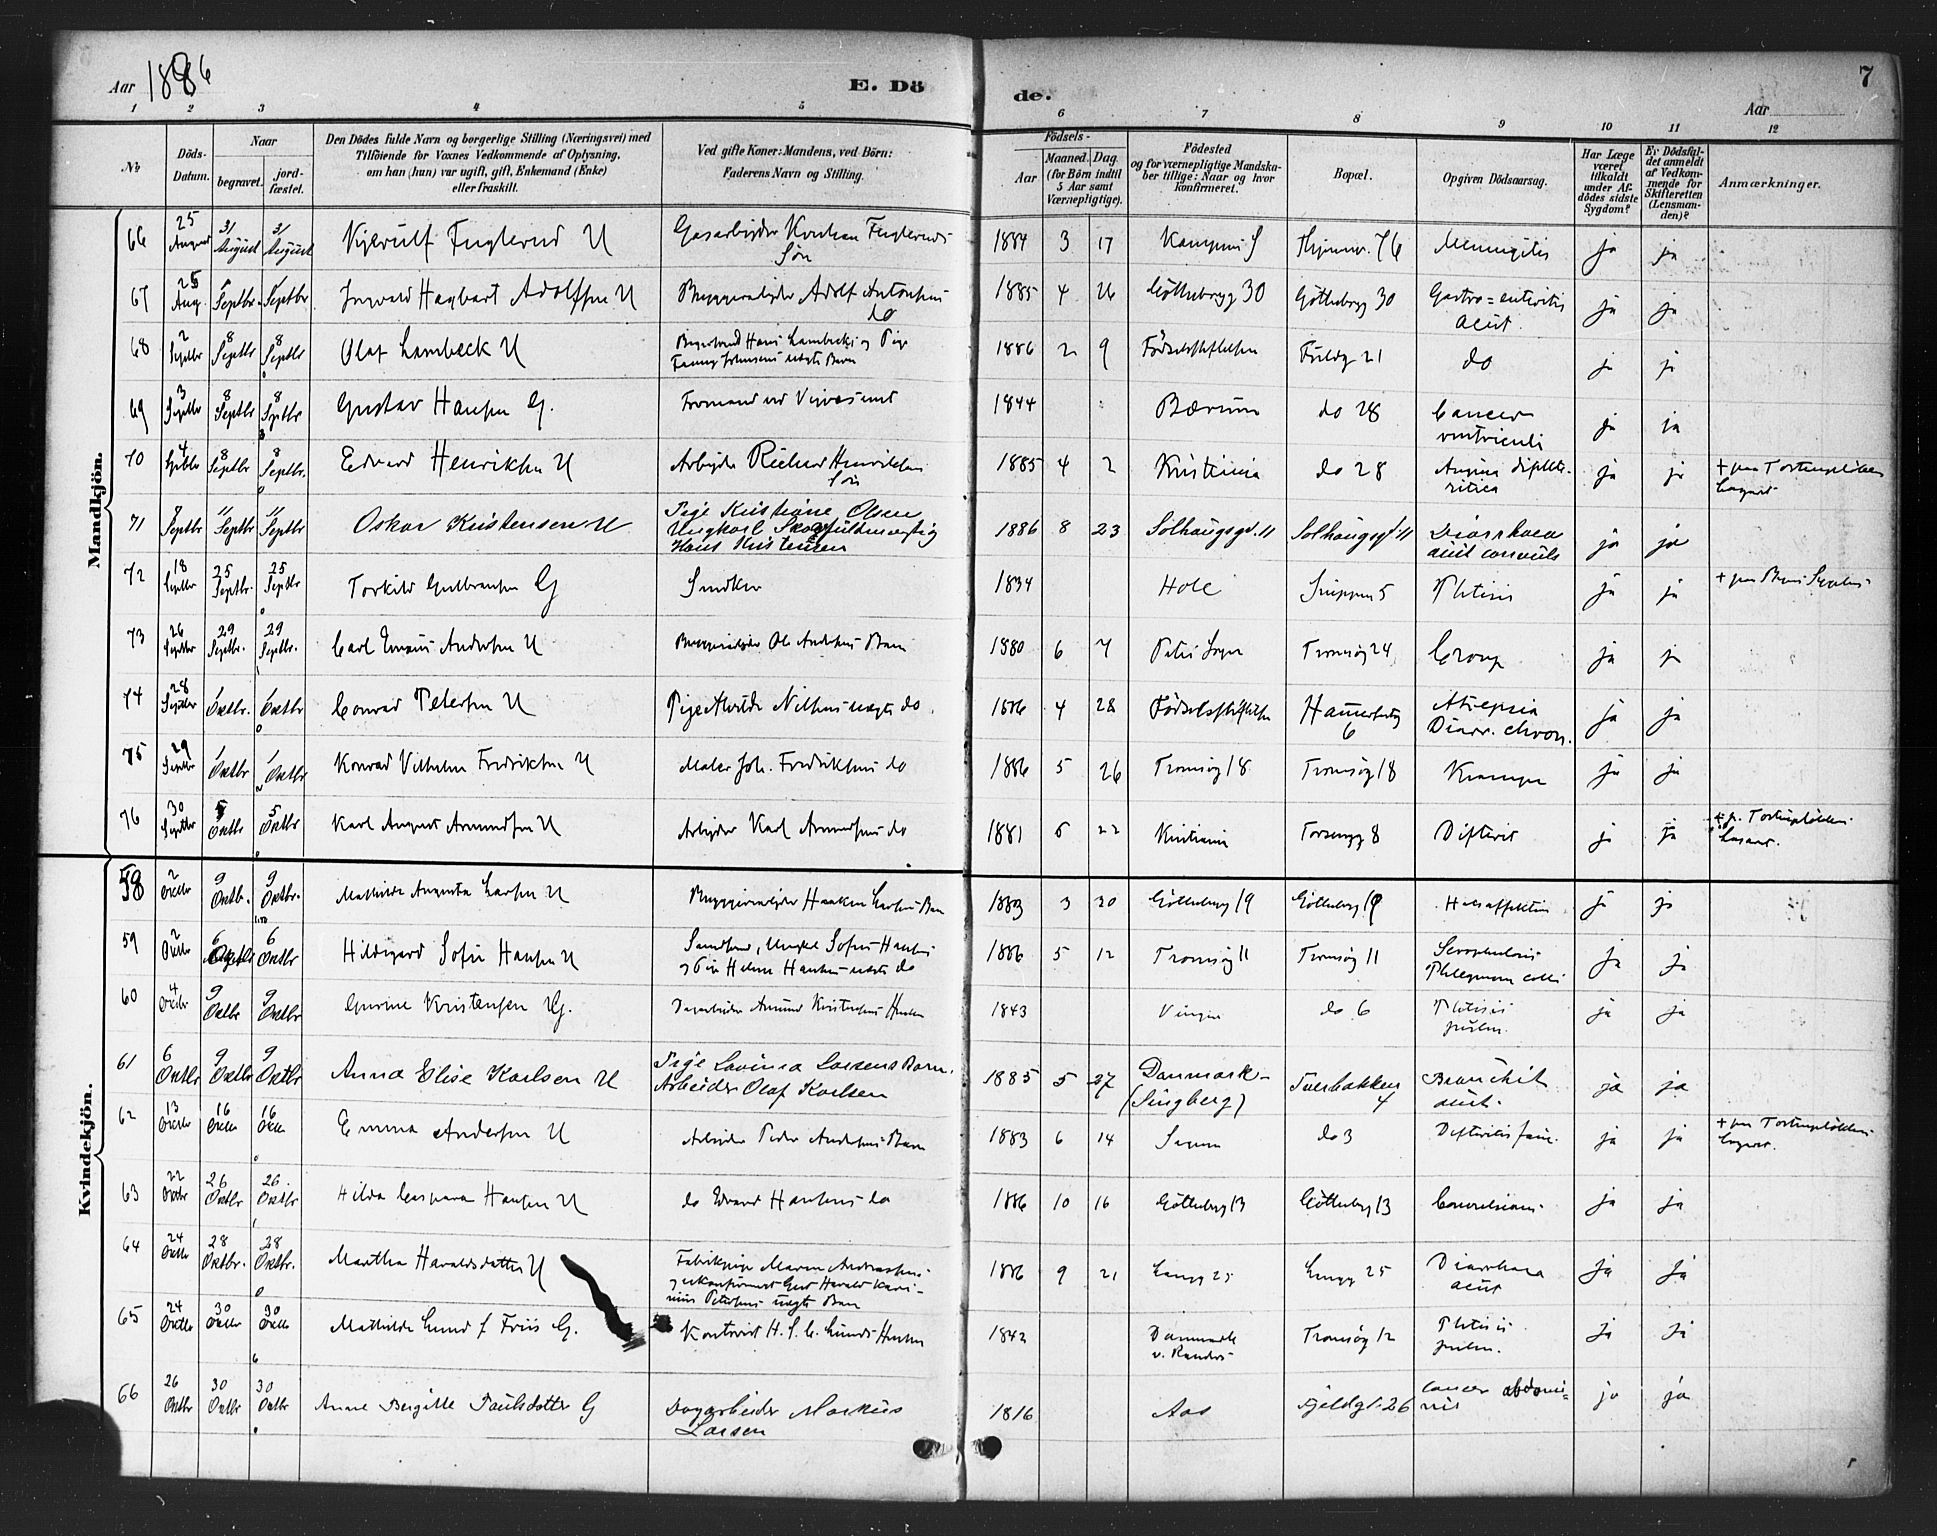 Aar 1886
E. Dö
de.
7
Aar
1 2 3 4 5 6 7 8 9 10 11 12
No
Döds-Datum.
Naar
begravet.
jord-fæstet.
Den Dödes fulde Navn og borgerlige Stilling (Næringsvei) med
Tilföiende for Voxnes Vedkommende af Oplysning,
om han (hun) var ugift, gift, Enkemand (Enke)
eller fraskilt.
Ved gifte Koner: Mandens, ved Börn:
Faderens Navn og Stilling.
Födsels-
Aar
Maaned. Dag.
(for Börn indtil
5 Aar samt
Værnepligtige).
Födested
og for værnepligtige Mandska-
ber tillige: Naar og hvor
konfirmeret.
Bopæl.
Opgiven Dödsaarsag.
Har Læge
været
tilkaldt
under Af-
dödes sidste
Sygdom?
Er Dödsfal-
det anmeldt
af Vedkom-
mende for
Skifteretten
(Lensman-
den)?
Anmærkninger.
Mandkjön.
66 25 August 31 August 31 August Kjerulf Fuglerud U Gasarbejder Fugleruds Sön 1884 3 17 76 Meningitis ja ja
67 25 Aug. Septbr. Septbr Ingvald Hagbart Adolfsen U Bryggeriarbejder Adolf Antonsens do 1885 4 26 Götteborgg 30 Götteborgg 30 Gastro=enteritis acut. ja ja
68 2 Septbr 8 Septbr 8 Septbr Olaf Lambeck U Hans Lambecks og Pige Fanny Johnsens uægte Barn 1886 2 9 Födselsstiftelsen 21 do ja ja
69 3 Septbr 8 Septbr 8 Septbr Gustav Hansen G. Formand ved 1844 Bærum do 28 Cancer ventriculi ja ja
70 4 Septbr 8 Septbr 8 Septbr. Edvard Henriksen U Arbejder Richard Henriksens Sön 1885 4 2 Kristiania do 28 Angina difthe-ritica ja ja
71 Septbr 11 Septbr 11 Septbr Oskar Kristensen U Pige Kristiane Olsen Ungkarl Hans Kristensen 1886 8 23 Solhaugsgd. 11 Solhaugsgd 11 Diarrhoea acut convuls ja ja
72 18 Septbr 25 Septbr. 25 Septbr Torkild Gulbransen G Snedker 1834 Hole Snippen 5 Phtisis ja ja
73 26 Septbr 29 Septbr. 29 Septbr. Carl Andersen U Bryggeriarbejder Ole Andersens Barn 1880 6 7 Petri Sogn Tromsög 24 Croup ja ja
74 28 Septbr 1 Octbr. 1 Octbr Conrad Petersen U Pige Nilsens uægte do 1886 4 28 Födselsstiftelsen 6 Atrepsia Diarr. chron. ja ja
75 29 Septbr 1 Octbr 1 Octbr Konrad Vilhelm Fredriksen U Maler Joh. Fredriksens do 1886 5 26 Tromsög 18 Tromsög 18 Krampe ja ja
76 30 Septbr 5 Octbr 5 Octbr Karl August Amundsen U Arbejder Karl Amundsens do 1881 22 Kristiania 8 Difterit ja ja
Kvindekjön.
58 2 Octbr 9 Octbr. 9 Octbr. Mathilde Augusta Larsen U Bryggeriarbejder Haaken Larsens Barn 1883 3 20 Götteborg 19 Götteborg 19 Halsaffektion ja ja
59 2 Octbr 6 Octbr 6 Octbr Hildegard Sofie Hansen U 1886 5 12 Tromsög 11 Tromsög 11 Phlegmone colli ja ja
60 4 Octbr 9 Octbr 9 Octbr Gurine Kristensen G. Dagarbeider Amund Kristensens Hustru 1843 Vinger do 6 Phtisis pulm. ja ja
61 6 Octbr 9 Octbr 9 Octbr Anna Elise Karlsen U Pige Lovinea Larsens Barn. Arbeider Olaf Karlsen 1885 5 27 Danmark (Lingberg) Tverbakken 4 Bronchit acut. ja ja
62 13 Octbr 16 Octbr 16 Octbr Emma Andersen U Arbejder Peder Andersens Barn 1883 6 14 do 3 Difteritis ja ja
63 22 Octbr 26 Octbr 26 Octbr Hilda Caspara Hansen U do Edvard Hansens do 1886 10 16 Götteborg 13 Götteborg 13 Convulsions ja ja
64 24 Octbr 28 Octbr. 28 Octbr. Martha Haraldsdatter U Fabrikpige Maren Andreassens Harald Petersens uægte Barn 1886 9 21 Langg 25 Langg 25 Diarrhoea acut ja ja
65 24 Octbr 30 Octbr 30 Octbr Mathilde Lund f. Friis G. Kontorist H. S. C. Lunds Hustru 1842 Danmark v. Randers Tromsög 12 Phtisis pulm. ja ja
66 26 Octbr 30 Octbr 30 Octbr Anne Bergitte Paulsdatter G Dagarbeider Markus Larsen 1816 Aas Fjeldgt. 26 Cancer abdomi=nis ja ja